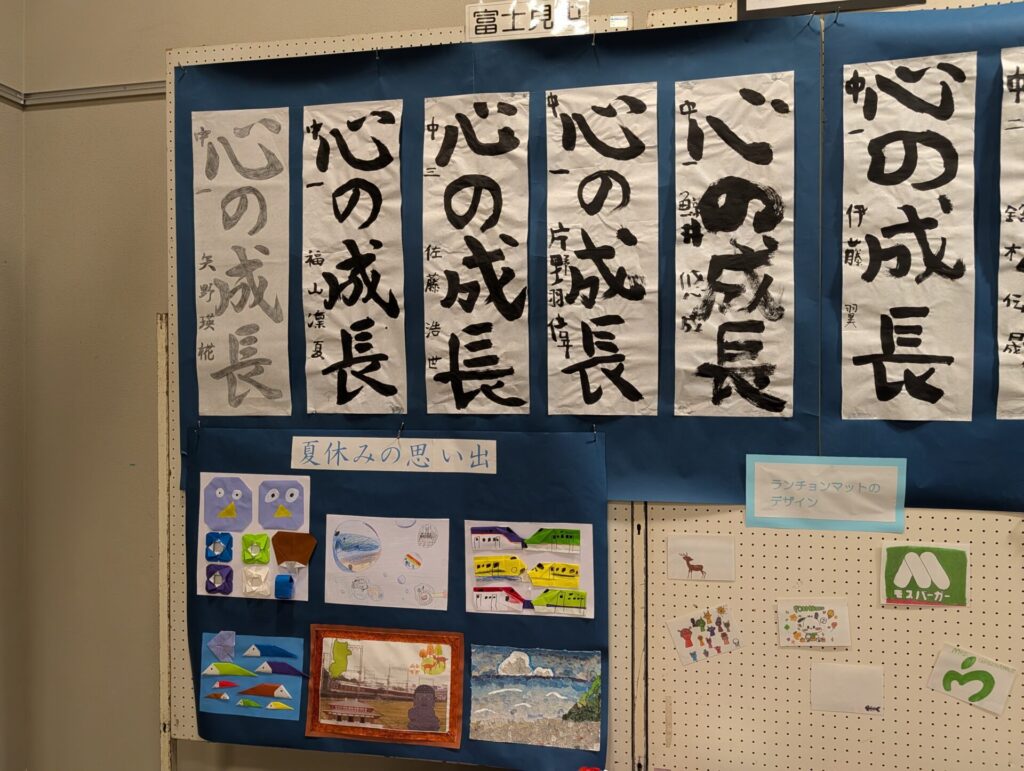 富士見
心の成長
中一 矢野瑛椛
心の成長
中一 福山凛夏
心の成長
中三 佐藤浩世
心の成長
中一 片野羽偉
心の成長
中一 鯨井
心の成長
中一 伊藤翼
中二 鈴木
夏休みの思い出
ランチョンマットの
デザイン
モスバーガー